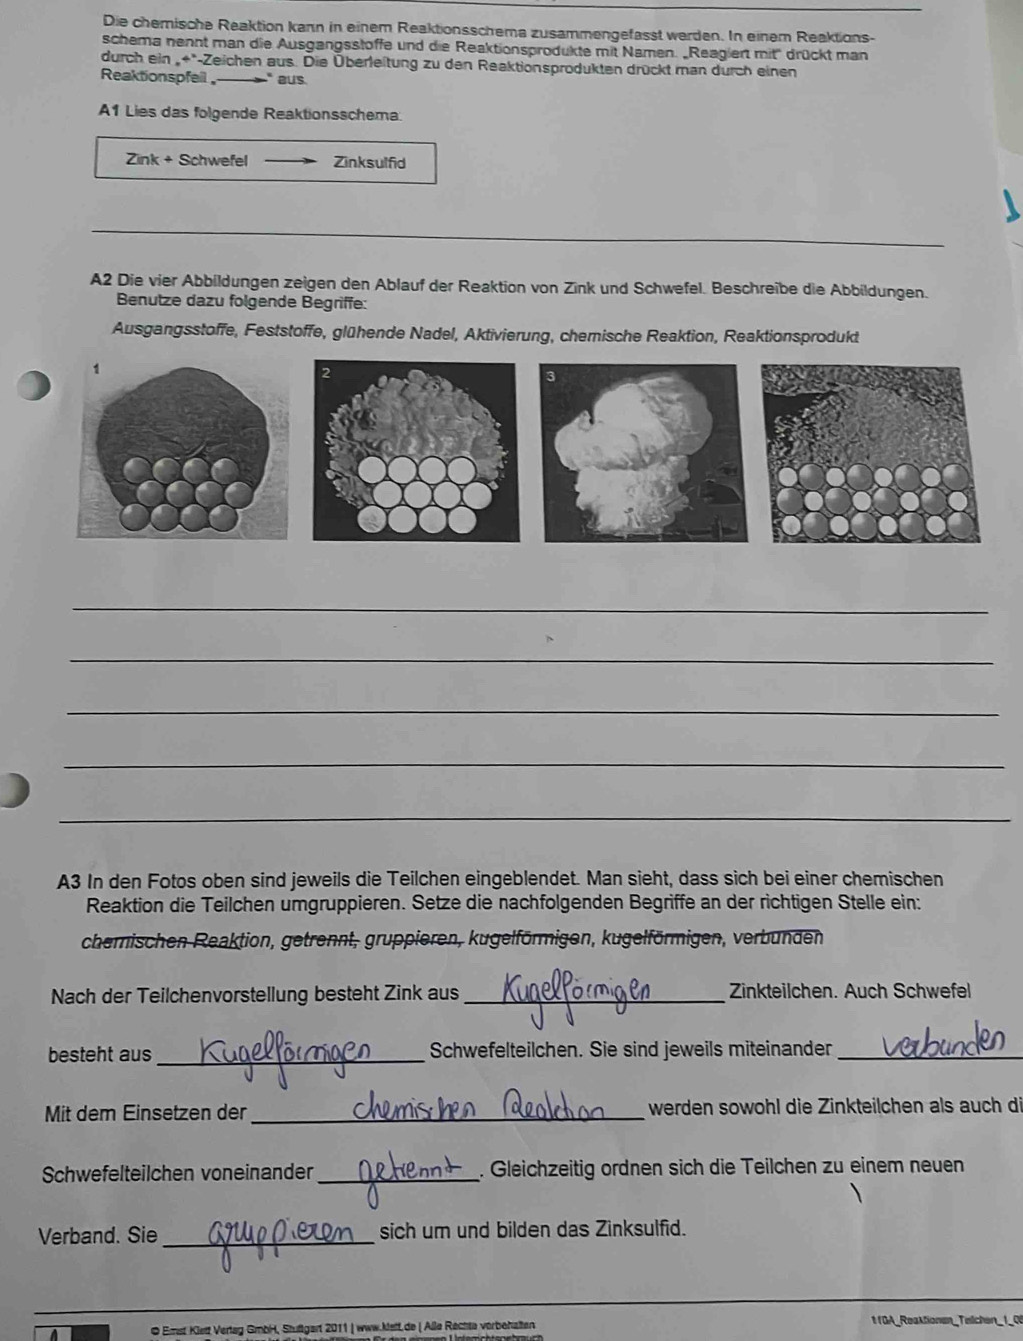 Die chemische Reaktion kann in einem Reaktionsschema zusammengefasst werden. In einem Reaktions-
schema nennt man die Ausgangsstoffe und die Reaktionsprodukte mit Namen. „Reagiert mit" drückt man
durch ein „+"-Zeichen aus. Die Überleitung zu den Reaktionsprodukten drückt man durch einen
Reaktionspfeil „⟶" aus.
A1 Lies das folgende Reaktionsschema:
Zink + Schwefel ⟶ Zinksulfid
A2 Die vier Abbildungen zeigen den Ablauf der Reaktion von Zink und Schwefel. Beschreibe die Abbildungen.
Benutze dazu folgende Begriffe:
Ausgangsstoffe, Feststoffe, glühende Nadel, Aktivierung, chemische Reaktion, Reaktionsprodukt
1 2 3
A3 In den Fotos oben sind jeweils die Teilchen eingeblendet. Man sieht, dass sich bei einer chemischen
Reaktion die Teilchen umgruppieren. Setze die nachfolgenden Begriffe an der richtigen Stelle ein:
chemischen Reaktion, getrennt, gruppieren, kugelförmigen, kugelförmigen, verbunden
Nach der Teilchenvorstellung besteht Zink aus Kugelförmigen Zinkteilchen. Auch Schwefel
besteht aus Kugelförmigen Schwefelteilchen. Sie sind jeweils miteinander verbunden
Mit dem Einsetzen der chemischen Reaktion werden sowohl die Zinkteilchen als auch di
Schwefelteilchen voneinander getrennt. Gleichzeitig ordnen sich die Teilchen zu einem neuen
Verband. Sie gruppieren sich um und bilden das Zinksulfid.
© Ernst Klett Verlag GmbH, Stuttgart 2011 | www.klett.de | Alle Rechte vorbehalten